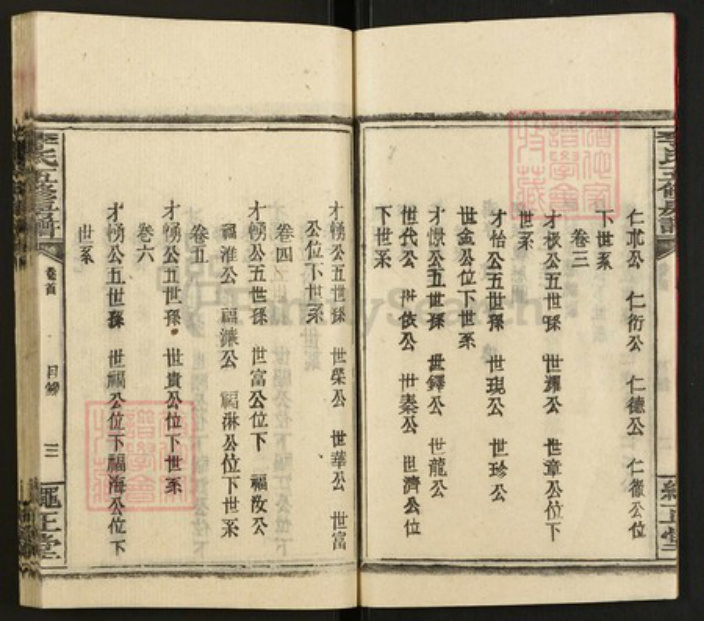 仁氶公 仁衍公 仁德公 仁徹公位
下世系
卷三
才棪公五世孫 世耀公 世章公位下
世系
才怡公五世孫 世現公 世珍公
世金公位下世系
才憬公五世孫 世鐸公 世龍公
世代公 世依公 世秦公 世濟公位
下世系
才㤛公五世孫 世榮公 世華公 世富
公位下世系
卷四
公五世孫 世富公位下 福汝公
福淮公 福公 福淋公位下世系
卷五
公五世孫 世貴公位下世系
卷六
公五世孫 世福公位下福海公位下
世系
李氏五修房譜
卷首
目錄
三
繩正堂
FamilySearch